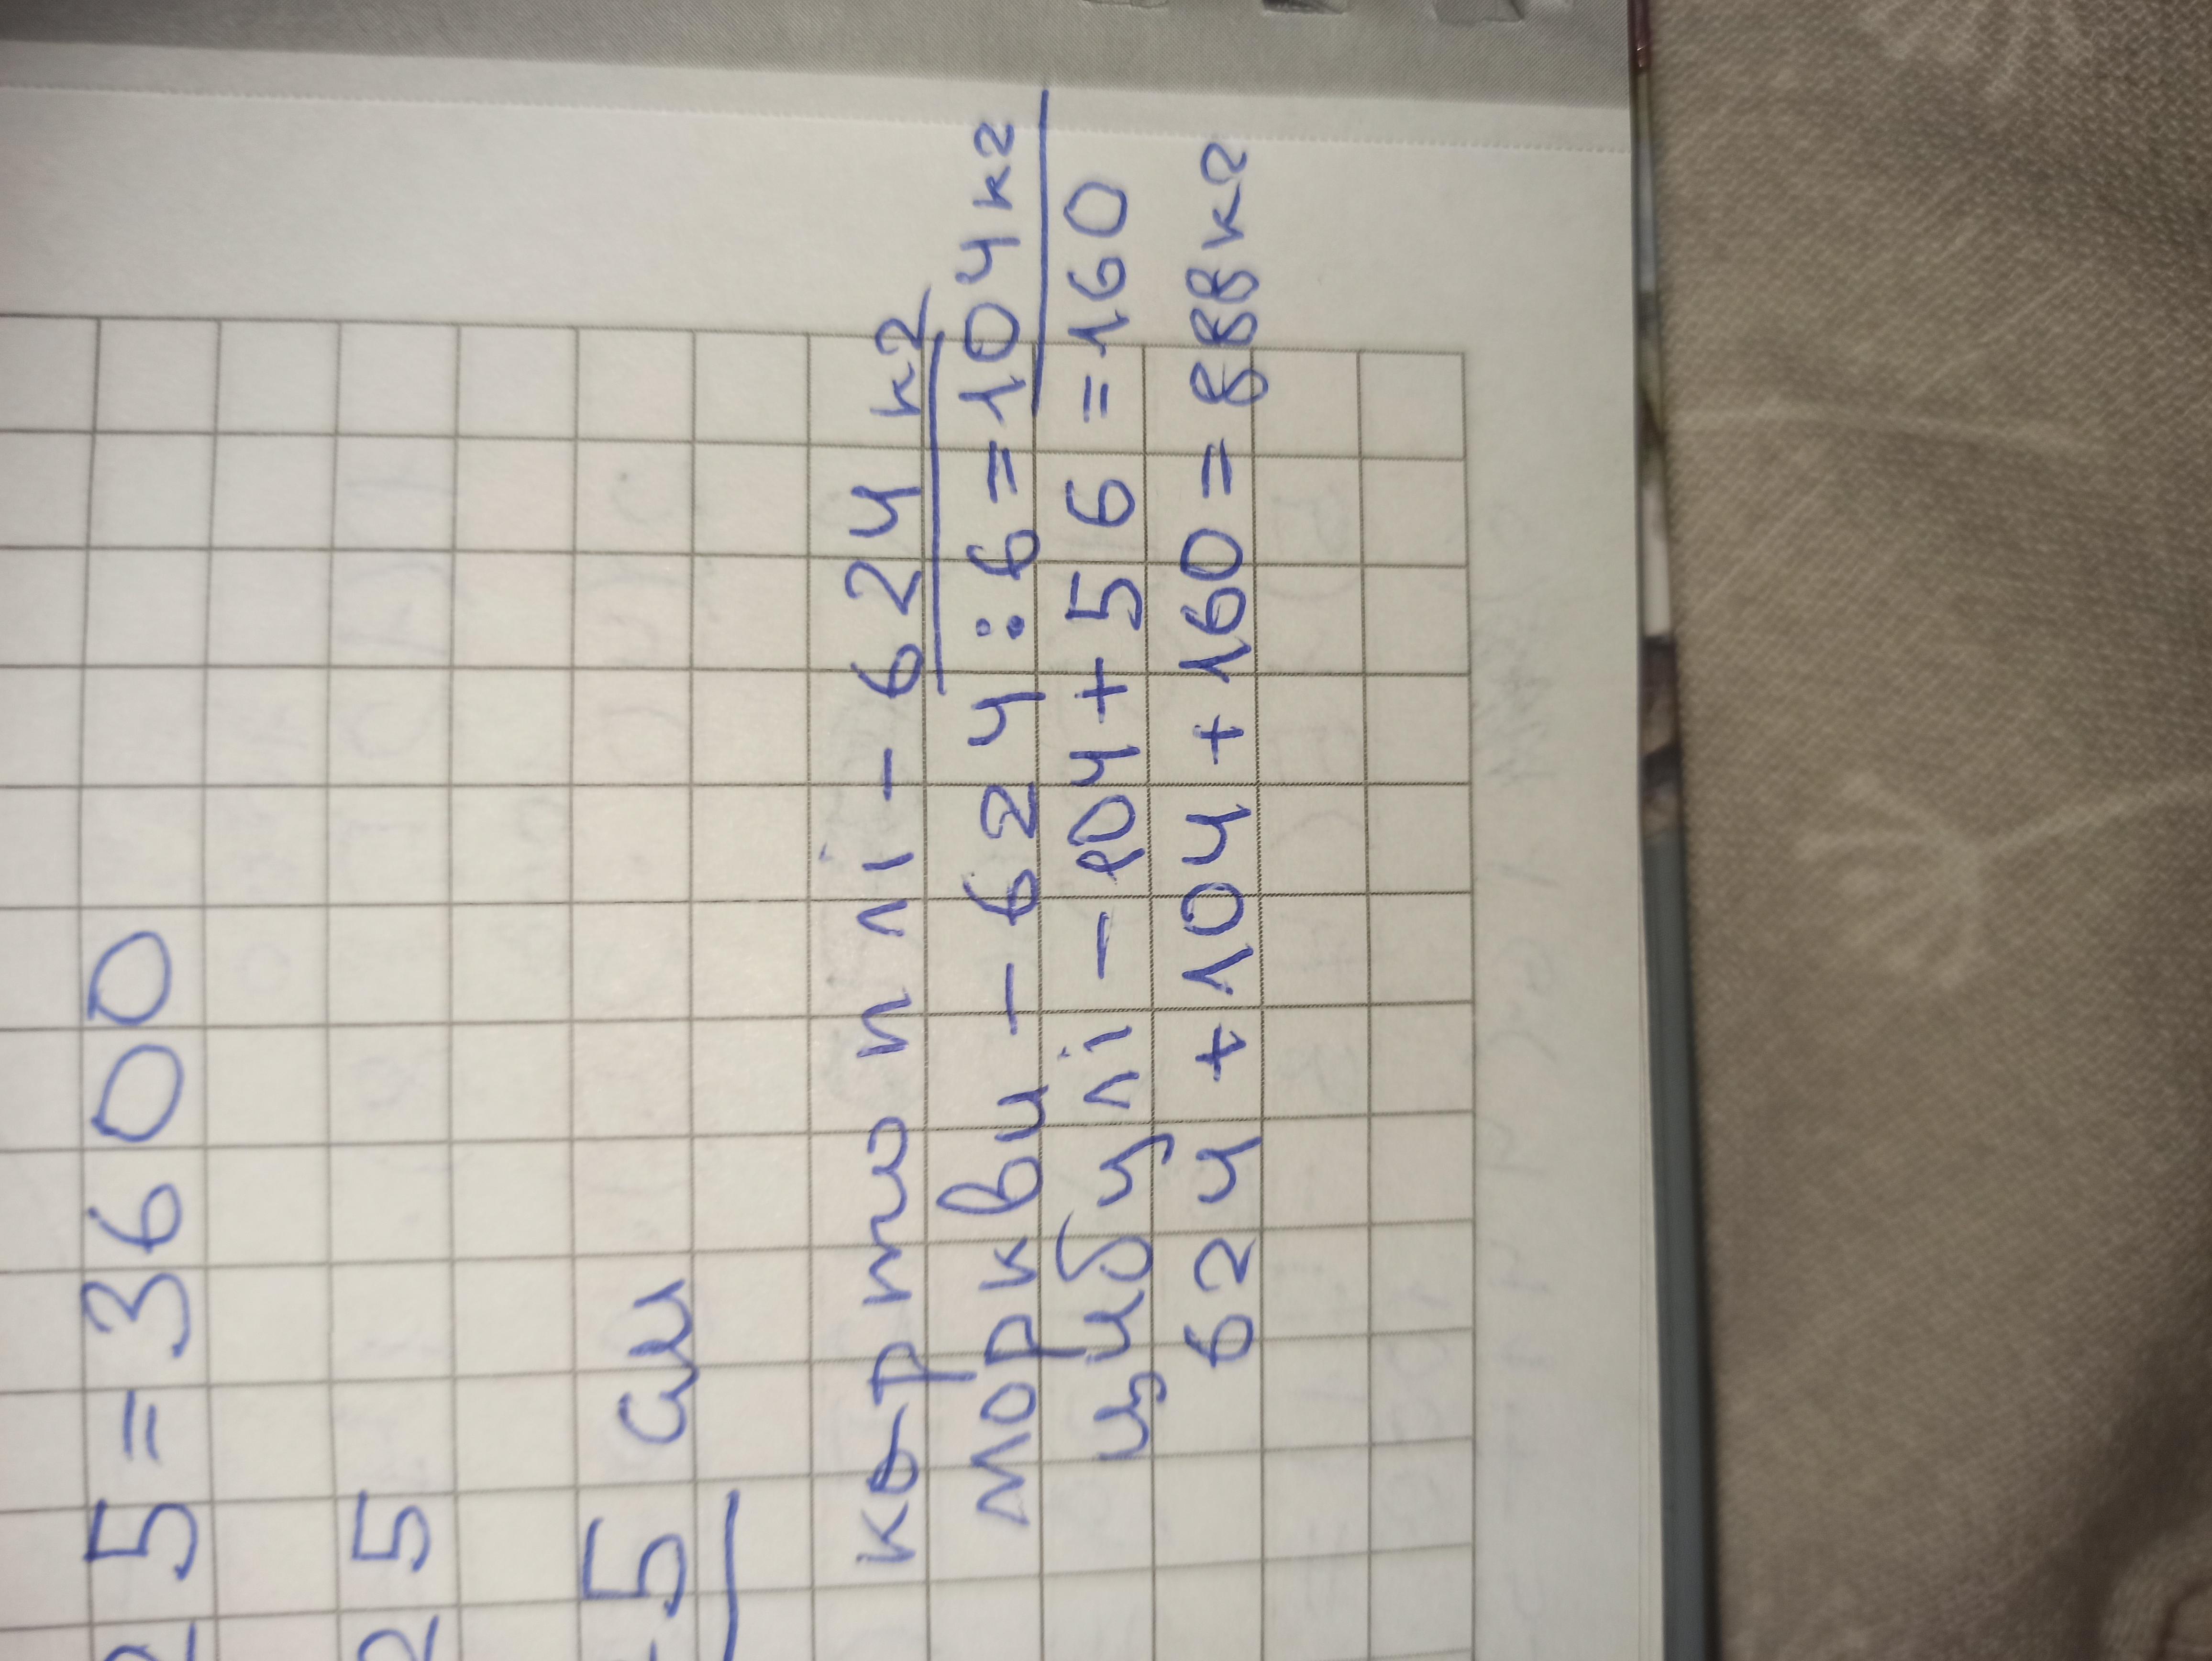 25 = 3600
25
5 см
картоплі - 624 кг
моркви - 624 : 6 = 104 кг
цибулі - 104 + 56 = 160
624 + 104 + 160 = 888 кг